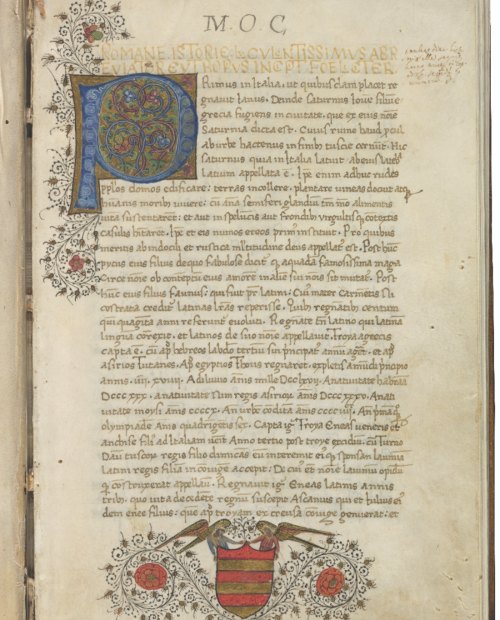 M. O. C,
ROMANE ISTORIE LOCVLENTISSIMVS ABR
EVIATOR EVTROPVS INCIPIT FOELICITER
PRimus in Italia, ut quibusdam placet re
gnauit Ianus. Deinde Saturnus Iouis filius e
grecia fugiens in ciuitate, que ex eius noie
Saturnia dicta est. Cuius ruine haud pcul
ab urbe hactenus in finibus tuscie cernunt. Hic
saturnus quia in Italia latuit ab eius
Latium appellata e. Ipse enim adhuc rudes
pplos domos edificare: terras incollere. plantare uineas docuit atq
humanis moribus uiuere: cu antea semiferi glandium alimentis
uita sustentarent: et aut in speluncis aut frondibus uirgultisq contextis
casulis hitaret. Ipse et eis numos ereos primum instituit. Pro quibus
meritis ab indocili et rustica multitudine deus appellatus est. Post huc
picus eius filius de quo fabulose dicit q a quadam famosissima maga
Circe noie ob conteptu eius amore in alite sui nois sit mutat. Post
hunc eius filius Faunus: qui fuit pr latini: Cui mater Carmetis
costrata creditur latinas lras reperisse. Quibus regnatibus centum
quinquaginta anni referunt euoluti. Regnate tn latino qui latina
lingua corexit, et latinos de suo noie appellauit. Troya a grecis
capta e. cu ap hebreos labdo tertiu sui principatus annu ageret. et ap
asirios Tutanes. Ap egyptios Thous regnaret. expletis a mudi principio
annis. iiij. xviiij. A diluuio anis mille Dcclxvij. A natiuitate habraa
Dcccxxx. a natiuitate nini regis asiriorum anis Dccccxxxv. A nati
uitate moysi anis ccccx. An urbe condita anis cccciiij. An prima
olympiade Anis quadrigentis sex. Capta igit Troya Eneas ueneris et
anchise filius ad Italiam uenit Anno tertio post troye excidiu. cu Turno
Dauni tuscorum regis filio dimicas eu interemit eiusq sponsam lauinia
Latini regis filia in coiuge accepit: De cuius et noie lauiniu opidu
q construxerat appellauit. Regnauit igit Eneas latinis annis
tribus. quo uita decedete regnum suscepit Ascanius qui et iulius eius
dem enee filius: que ap troyam ex creusa coniuge genuerat: et